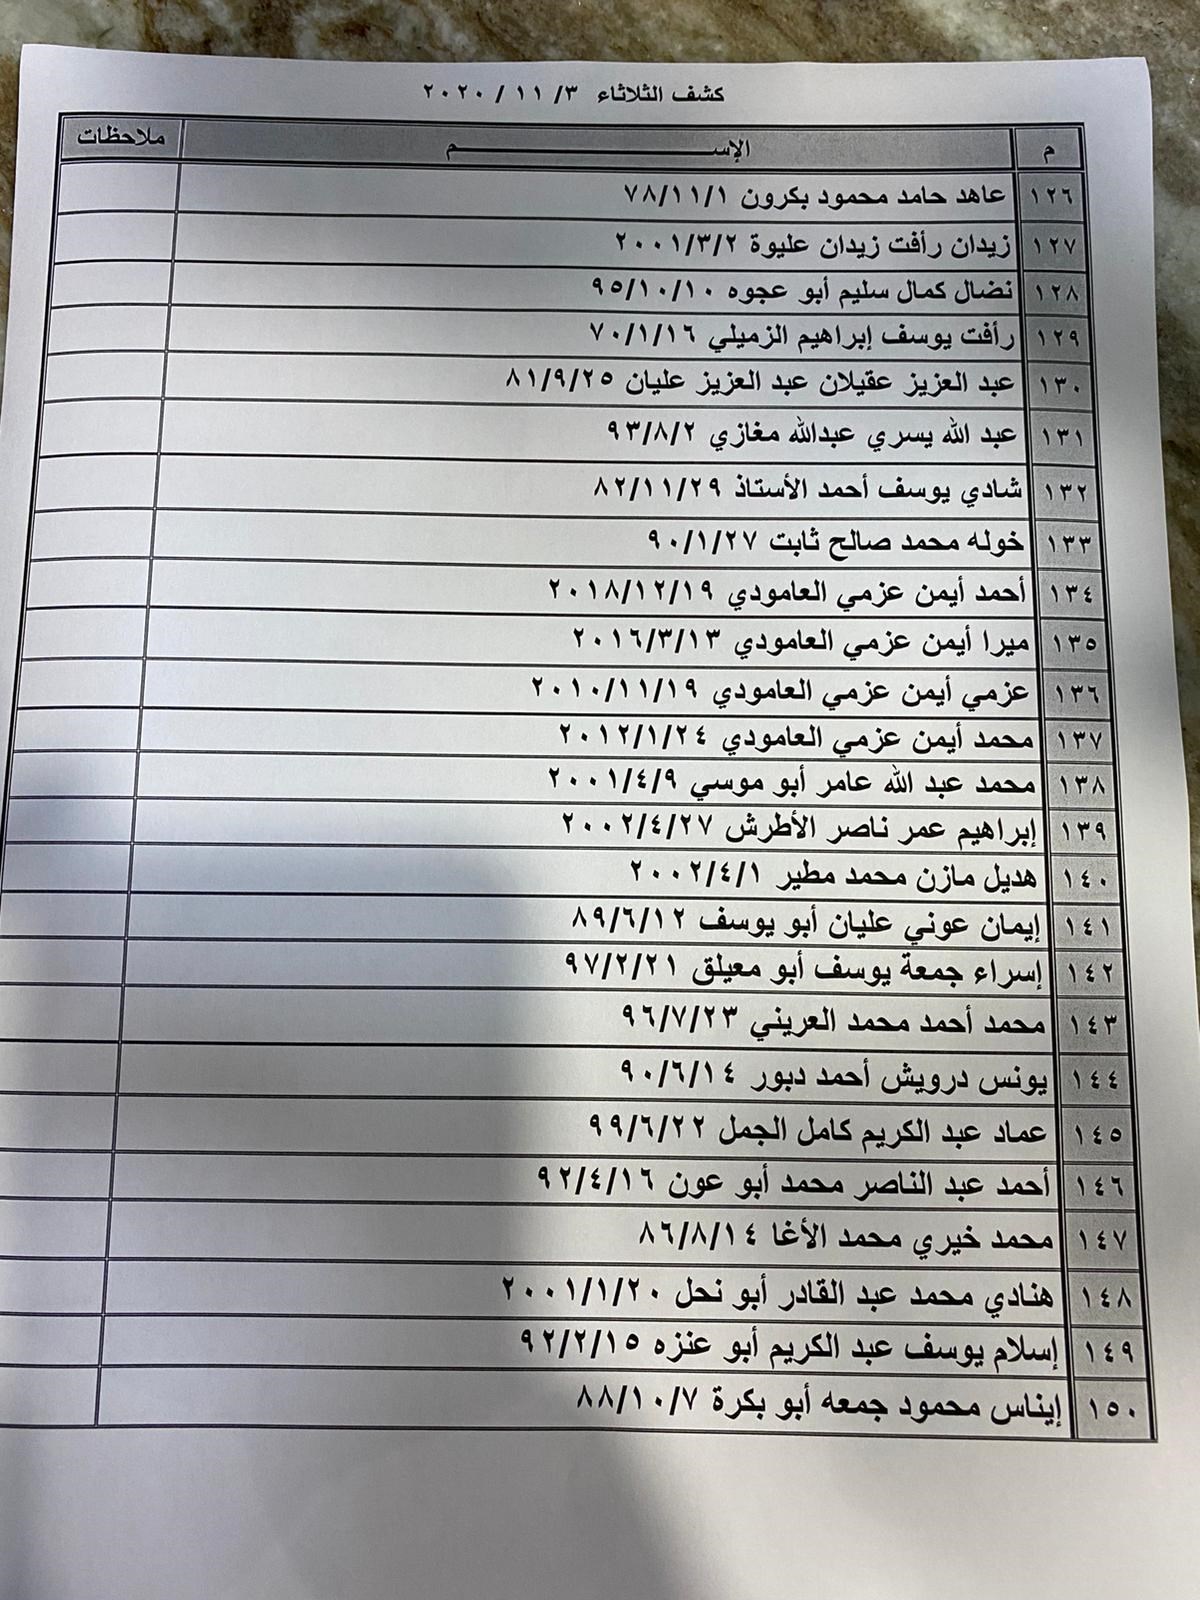 كشف الثلاثاء ٣/ ١١ / ٢٠٢٠
م الإســـــــــــم ملاحظات
١٢٦ عاهد حامد محمود بكرون ٧٨/١١/١
١٢٧ زيدان رأفت زيدان عليوة ٢٠٠١/٣/٢
١٢٨ نضال كمال سليم أبو عجوه ٩٥/١٠/١٠
١٢٩ رأفت يوسف إبراهيم الزميلي ٧٠/١/١٦
١٣٠ عبد العزيز عقيلان عبد العزيز عليان ٨١/٩/٢٥
١٣١ عبد الله يسري عبدالله مغازي ٩٣/٨/٢
١٣٢ شادي يوسف أحمد الأستاذ ٨٢/١١/٢٩
١٣٣ خوله محمد صالح ثابت ٩٠/١/٢٧
١٣٤ أحمد أيمن عزمي العامودي ٢٠١٨/١٢/١٩
١٣٥ ميرا أيمن عزمي العامودي ٢٠١٦/٣/١٣
١٣٦ عزمي أيمن عزمي العامودي ٢٠١٠/١١/١٩
١٣٧ محمد أيمن عزمي العامودي ٢٠١٢/١/٢٤
١٣٨ محمد عبد الله عامر أبو موسي ٢٠٠١/٤/٩
١٣٩ إبراهيم عمر ناصر الأطرش ٢٠٠٢/٤/٢٧
١٤٠ هديل مازن محمد مطير ٢٠٠٢/٤/١
١٤١ إيمان عوني عليان أبو يوسف ٨٩/٦/١٢
١٤٢ إسراء جمعة يوسف أبو معيلق ٩٧/٢/٢١
١٤٣ محمد أحمد محمد العريني ٩٦/٧/٢٣
١٤٤ يونس درويش أحمد دبور ٩٠/٦/١٤
١٤٥ عماد عبد الكريم كامل الجمل ٩٩/٦/٢٢
١٤٦ أحمد عبد الناصر محمد أبو عون ٩٢/٤/١٦
١٤٧ محمد خيري محمد الأغا ٨٦/٨/١٤
١٤٨ هنادي محمد عبد القادر أبو نحل ٢٠٠١/١/٢٠
١٤٩ إسلام يوسف عبد الكريم أبو عنزه ٩٢/٢/١٥
١٥٠ إيناس محمود جمعه أبو بكرة ٨٨/١٠/٧